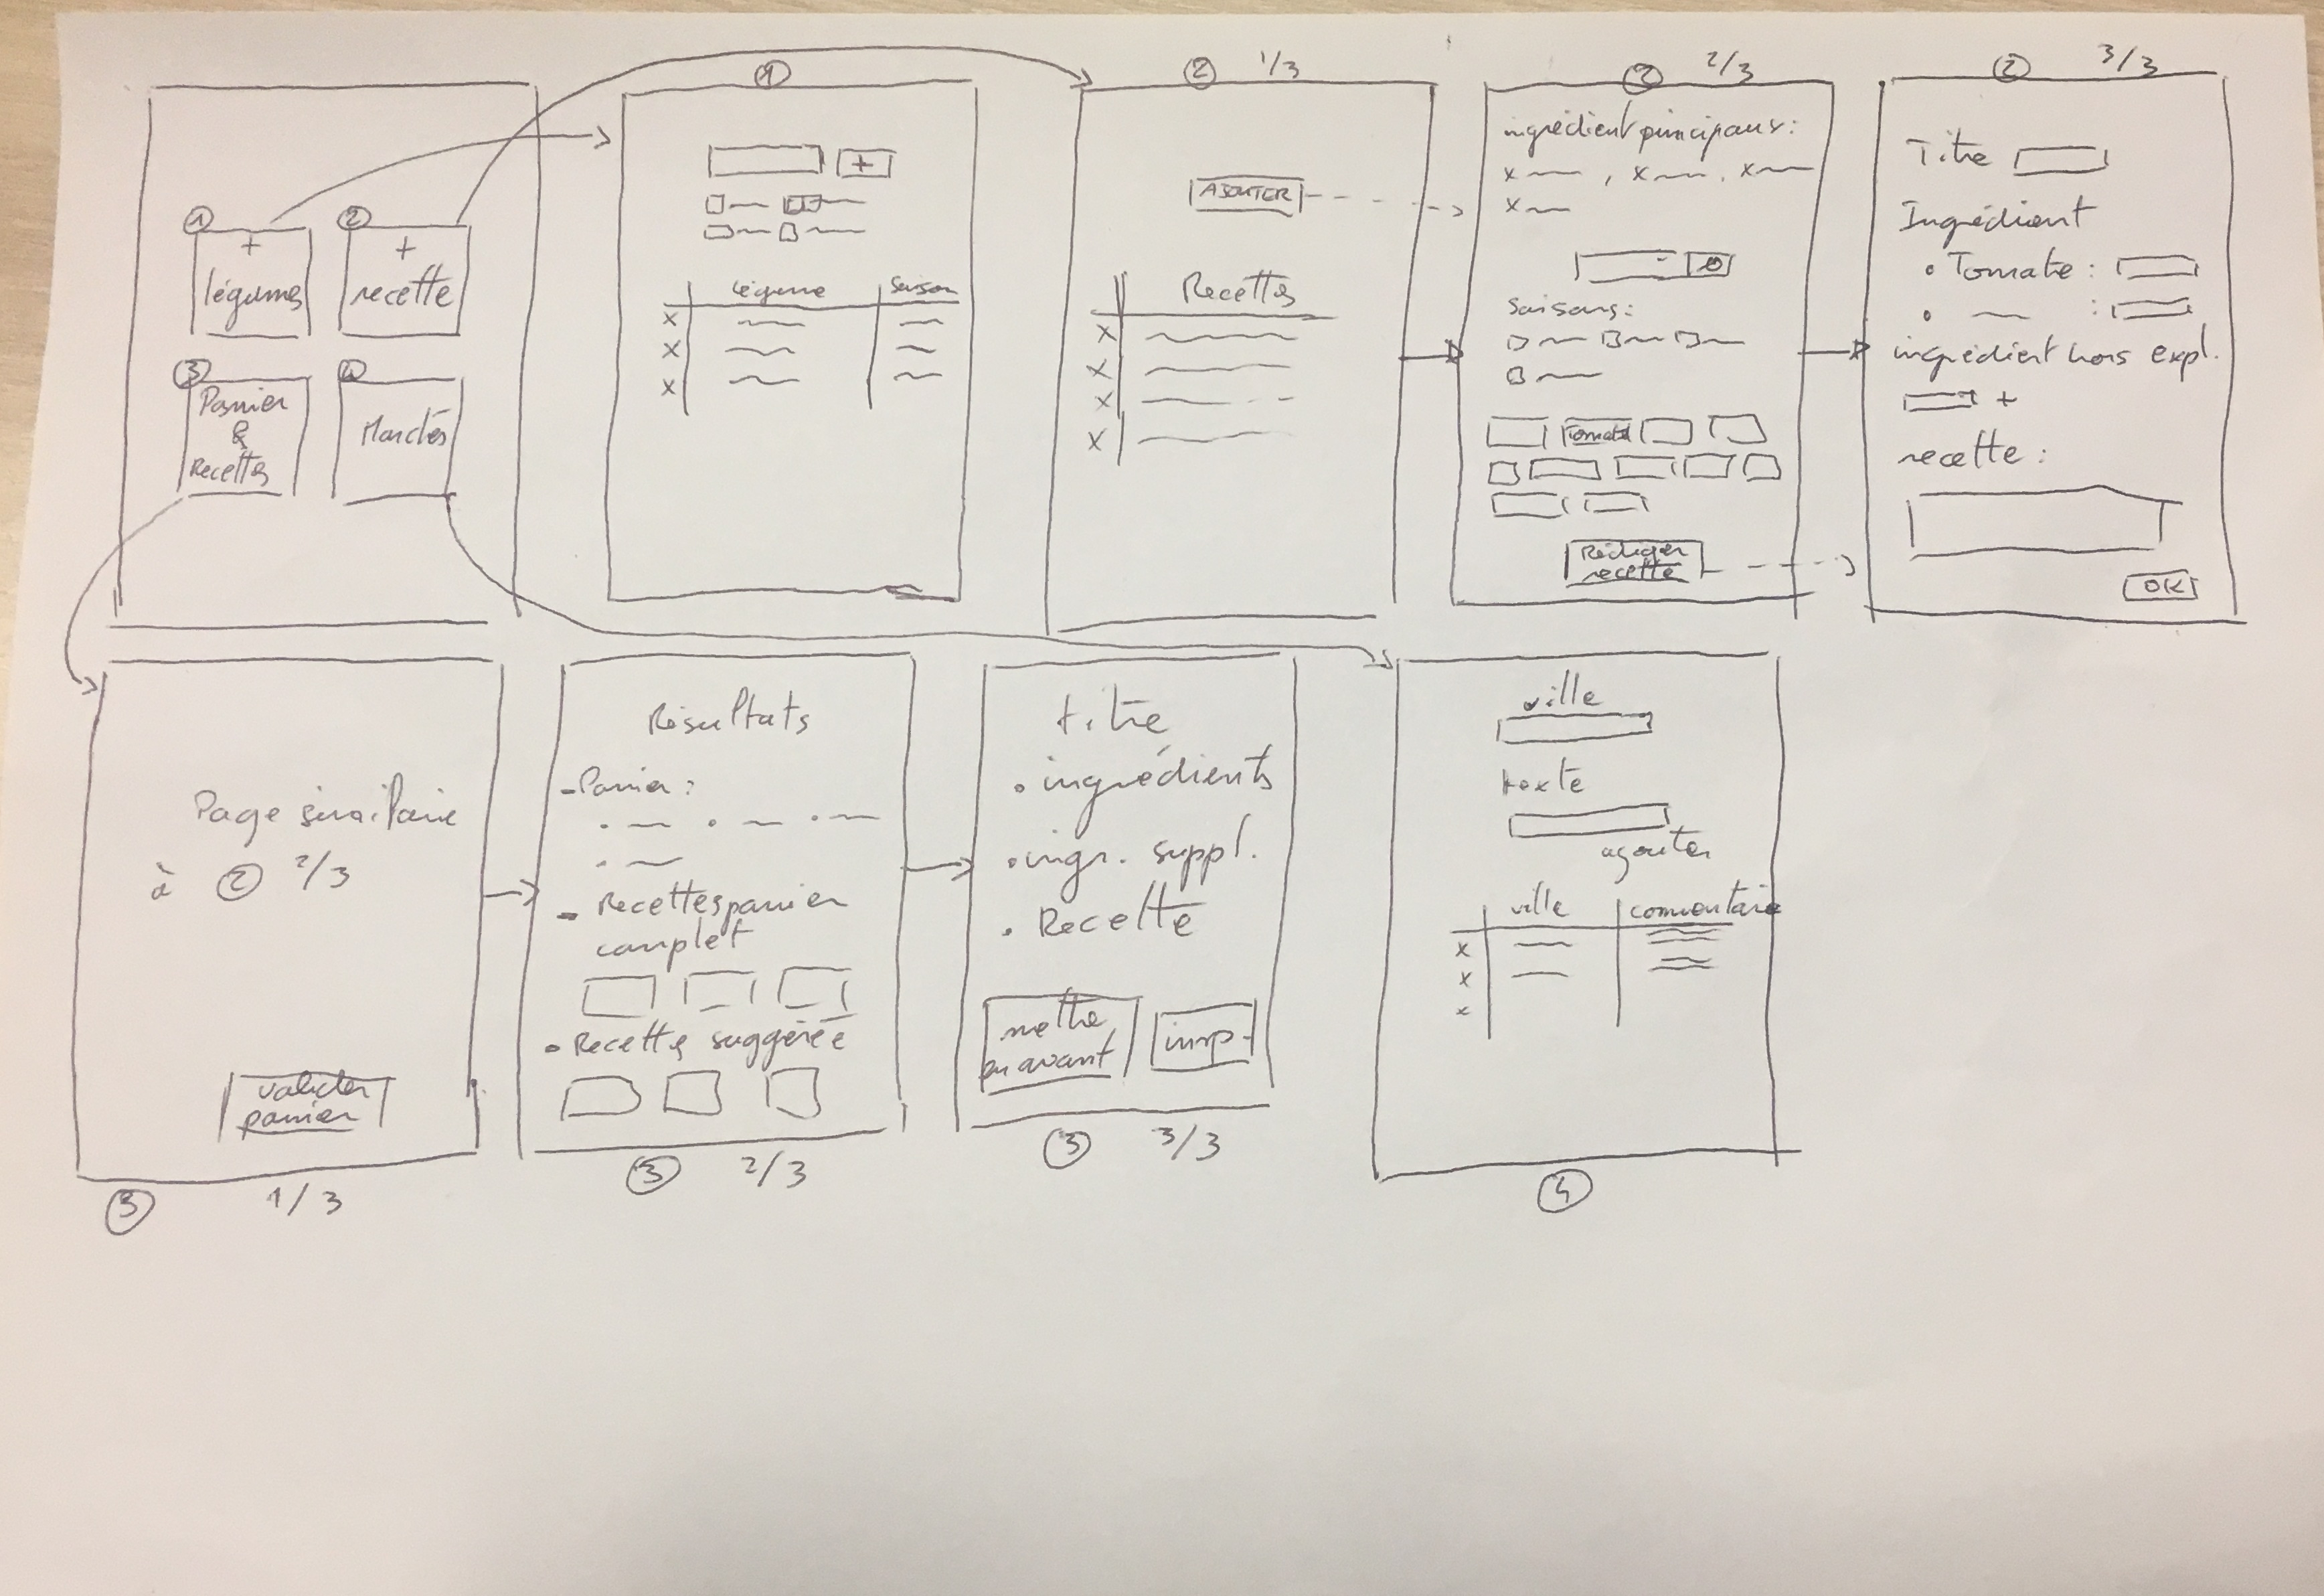 ①
+
légumes
②
+
recette
③
Panier
&
Recettes
④
Marchés
①
+
légume saison
x
x
x
② 1/3
AJOUTER
Recettes
x
x
x
x
② 2/3
ingrédient principaux:
x , x , x
x
saisons:
Tomate
Rédiger
recette
② 3/3
Titre
Ingrédient
• Tomate :
• :
ingrédient hors expl.
+
recette :
OK
Page similaire
à ② 2/3
valider
panier
③ 1/3
Résultats
- Panier :
- Recettes panier
complet
• Recette suggérée
③ 2/3
titre
• ingrédients
• ingr. suppl.
• Recette
mettre
en avant
imp.
③ 3/3
ville
texte
ajouter
ville commentaire
x
x
x
④